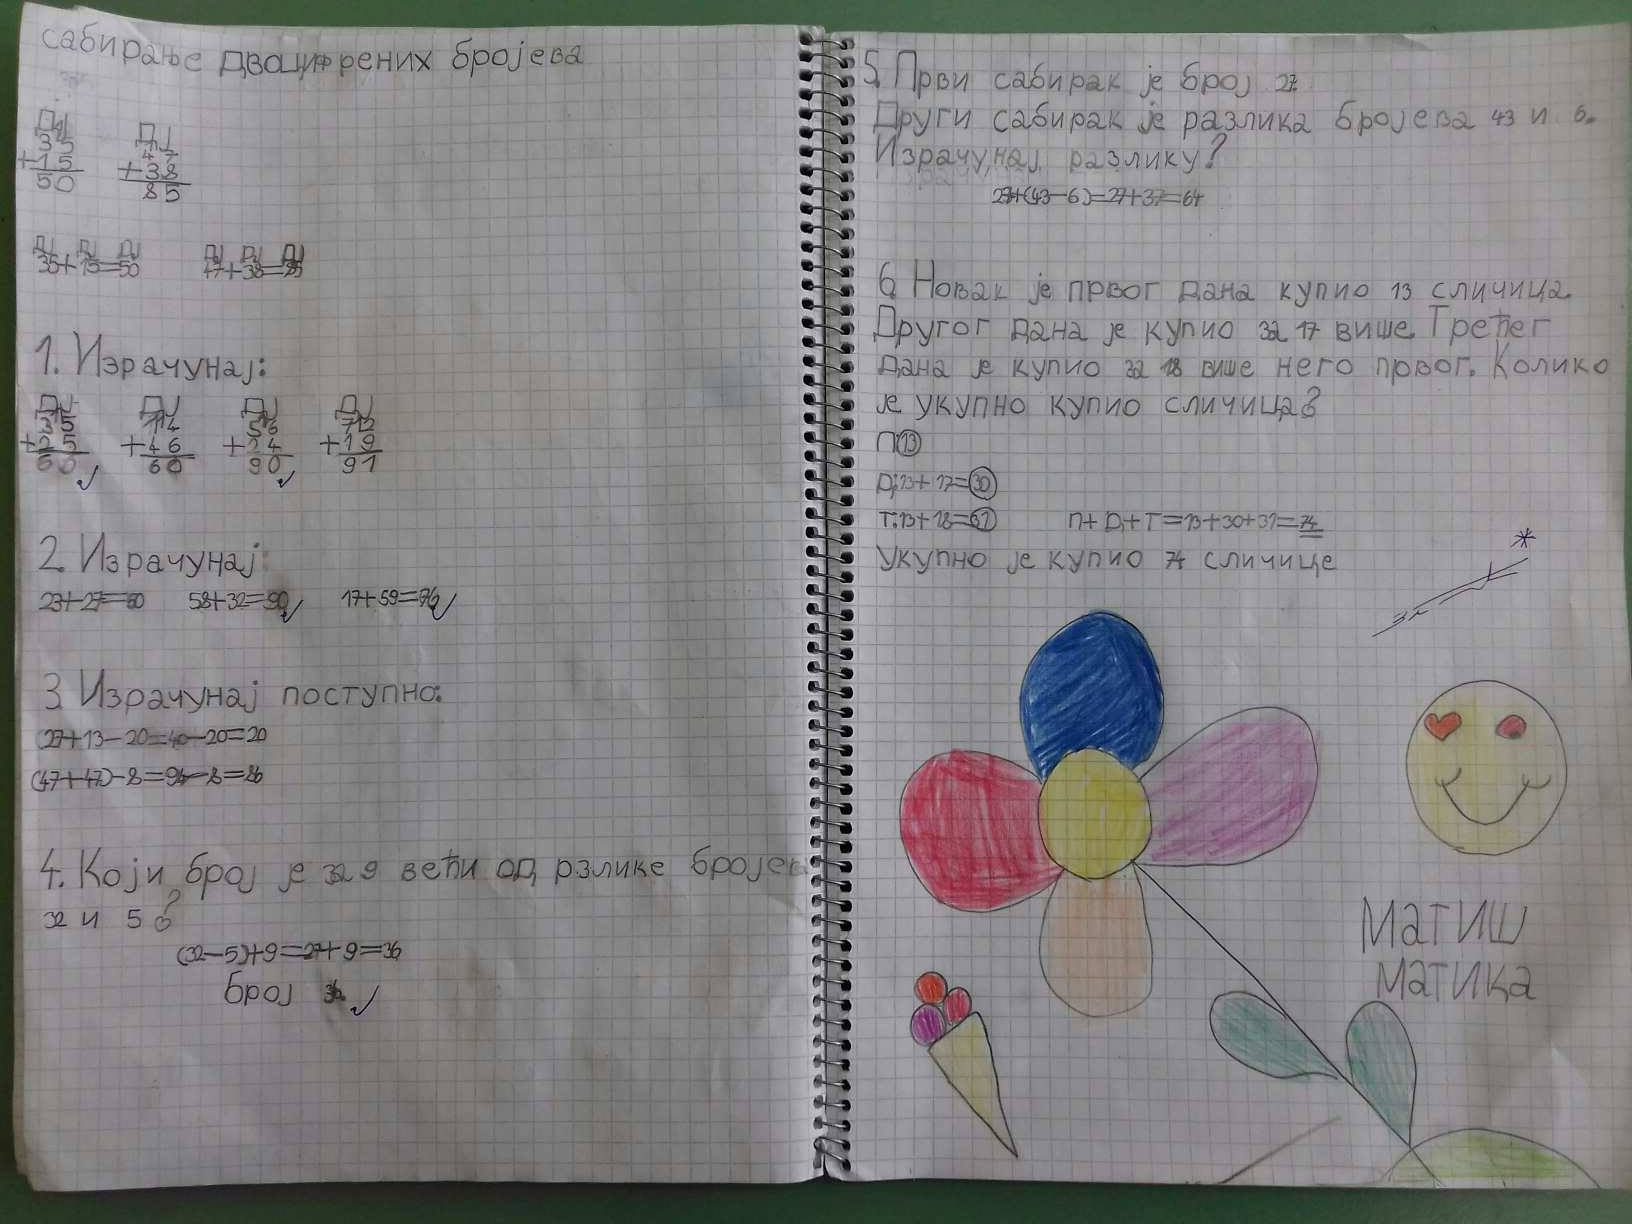 сабирање двоцифрених бројева
ДЈ ДЈ
35 47
+15 +38
50 85
ДЈ ДЈ ДЈ ДЈ ДЈ ДЈ
35+15=50 47+38=85
1. Израчунај:
ДЈ ДЈ ДЈ ДЈ
35 14 56 72
+25 +46 +34 +19
60 60 90 91
2. Израчунај:
23+27=50 58+32=90 17+59=76
3. Израчунај поступно:
(27+13-20=40-20=20
(47+47)-8=94-8=86
4. Који број је за 9 већи од рзлике бројева
32 и 5?
(32-5)+9=27+9=36
број 36
5. Први сабирак је број 27.
Други сабирак је разлика бројева 43 и 6.
Израчунај разлику?
27+(43-6)=27+37=64
6. Новак је првог дана купио 13 сличица.
Другог дана је купио за 17 више. Трећег
дана је купио за 18 више него првог. Колико
је укупно купио сличица?
П 13
Д:13+17=30
Т:13+18=31 П+Д+Т=13+30+31=74
Укупно је купио 74 сличице
*
МАТИШ
МАТИКА